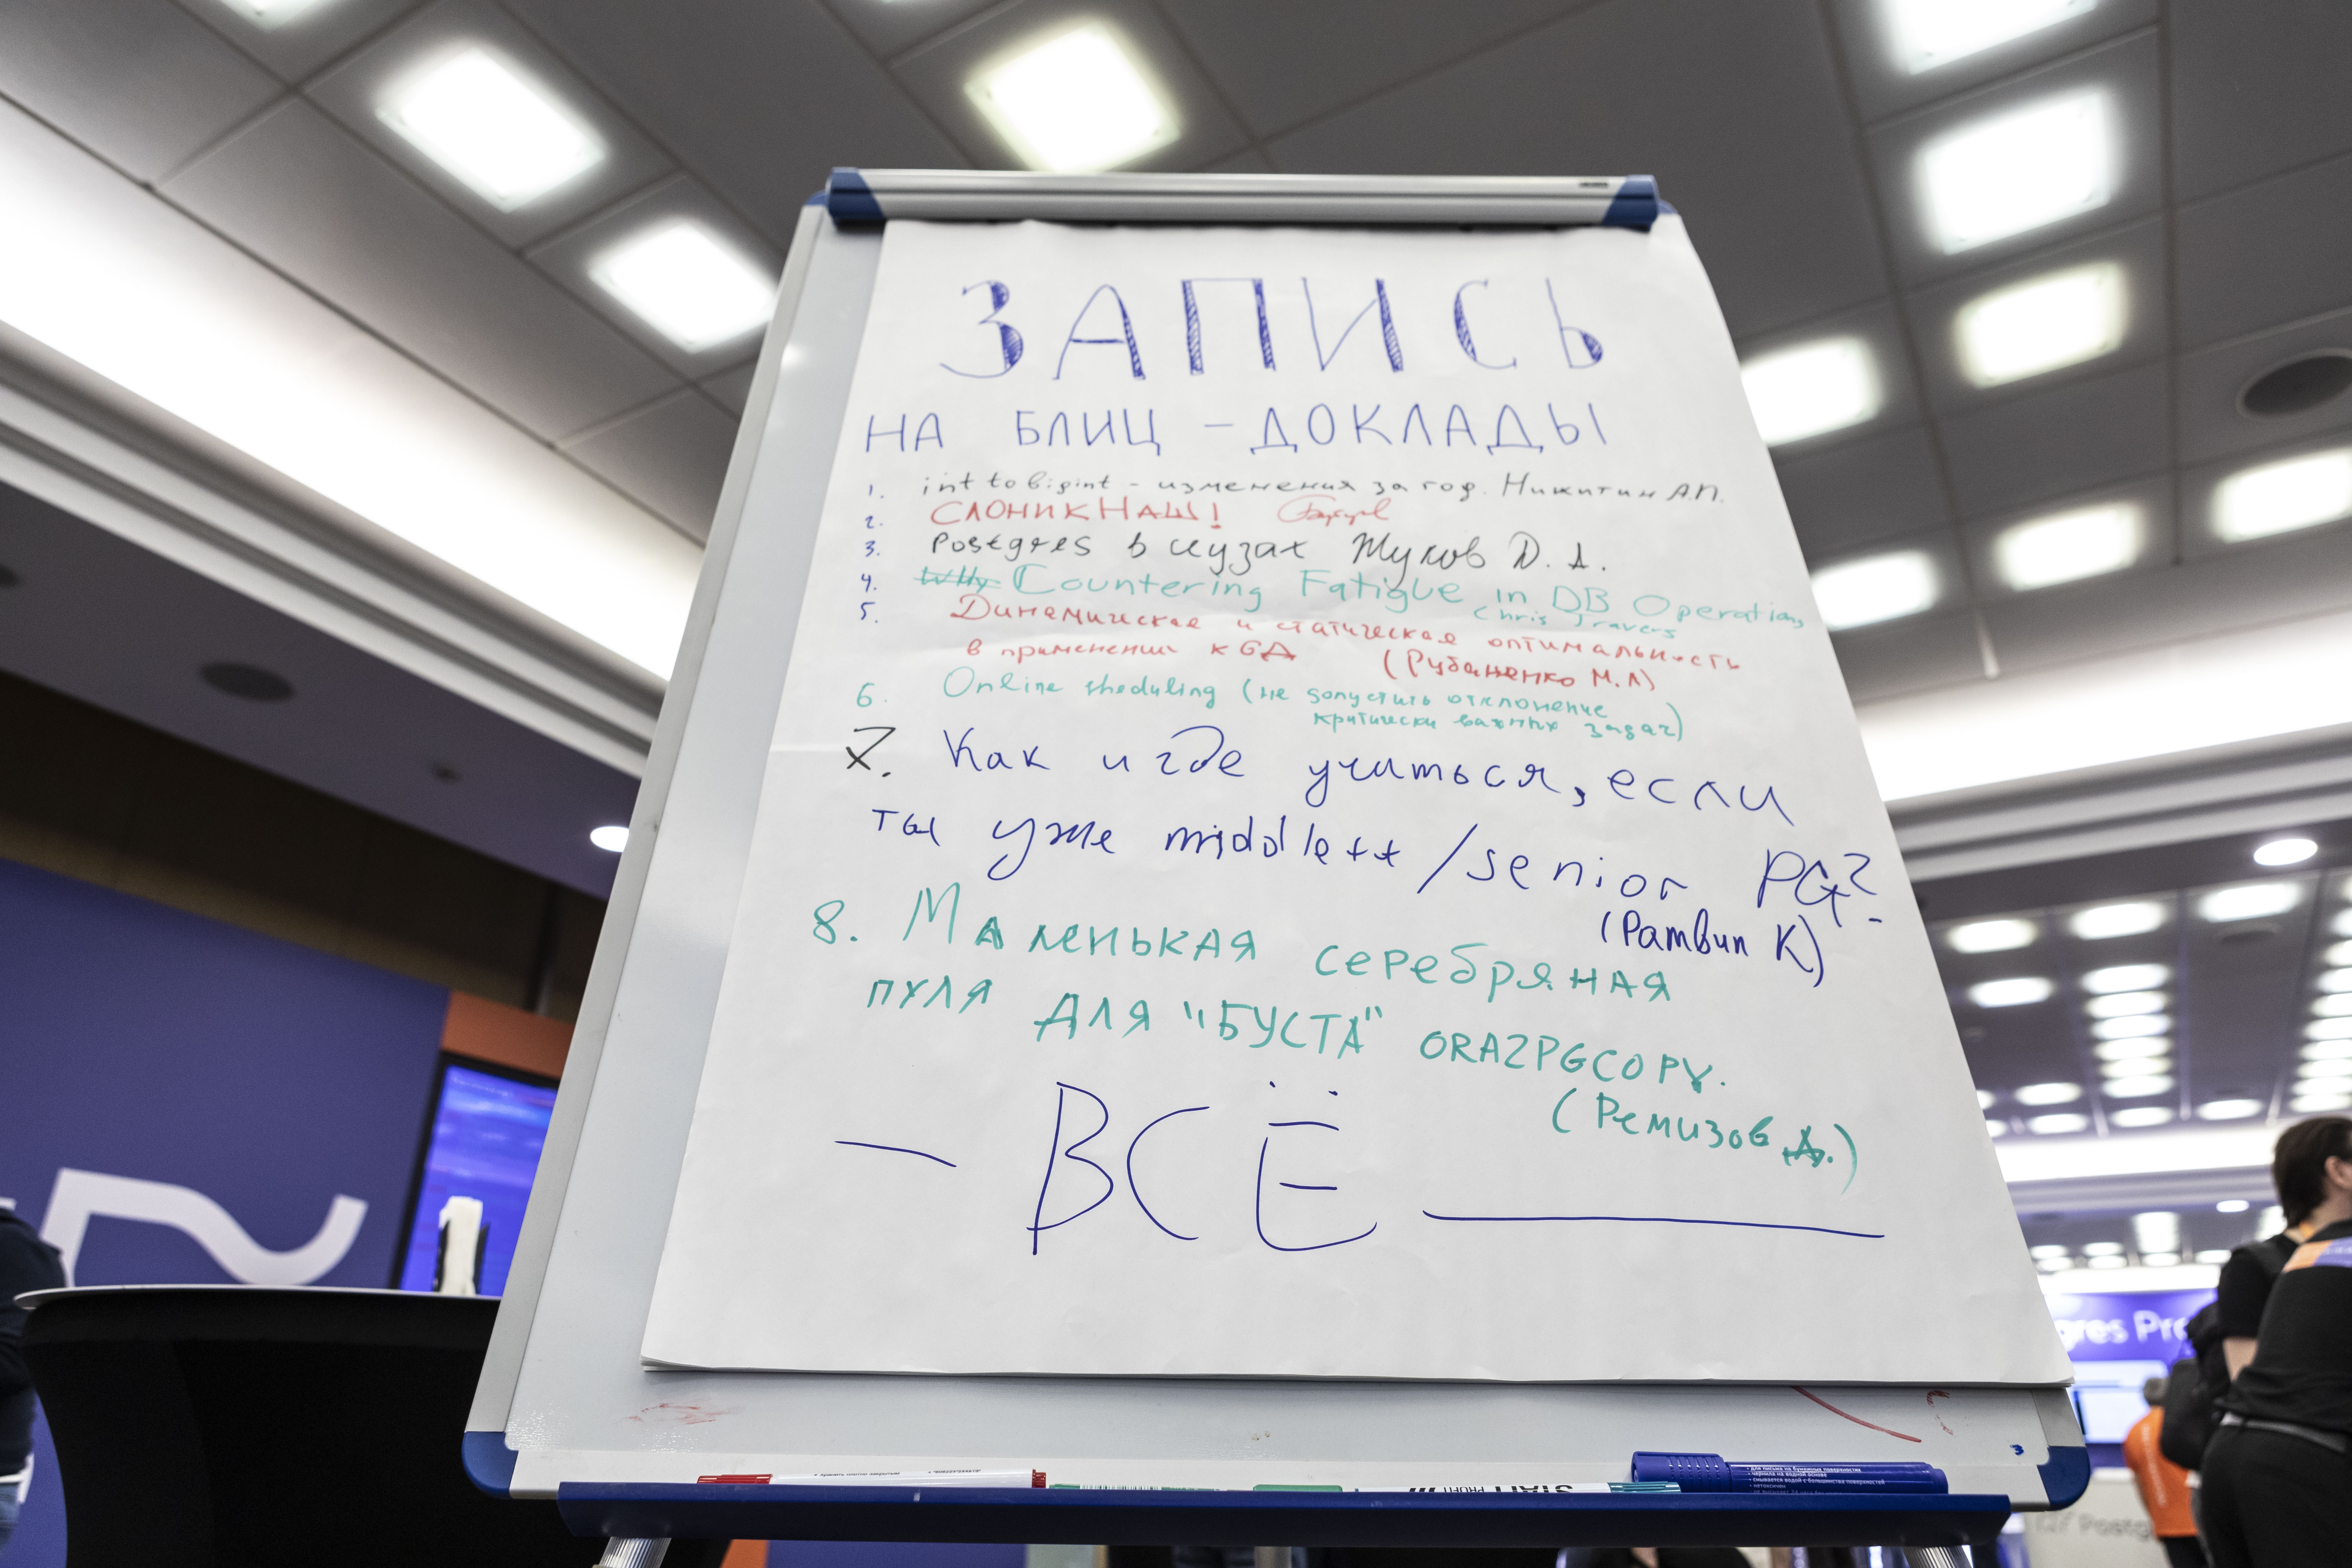 ЗАПИСЬ
НА БЛИЦ - ДОКЛАДЫ
1. int to bigint - изменения за год. Никитин А.П.
2. СЛОНИК НАШ!
3. Postgres в сузах Жуков Д. А.
4. Why Countering Fatigue in DB Operations
Chris Travers
5. Динамическая и статическая оптимальность
в применении к БД (Рубаненко М.Л)
6. Online sheduling (не допустить отклонение
критически важных задач)
7. Как и где учиться, если
ты уже middle++ / senior PG?
(Ратвип К)
8. Маленькая серебряная
пуля для "БУСТА" ORA2PGCOPY.
(Ремизов Д.)
— ВСЁ —
gres Pro
STAFF PROFIT